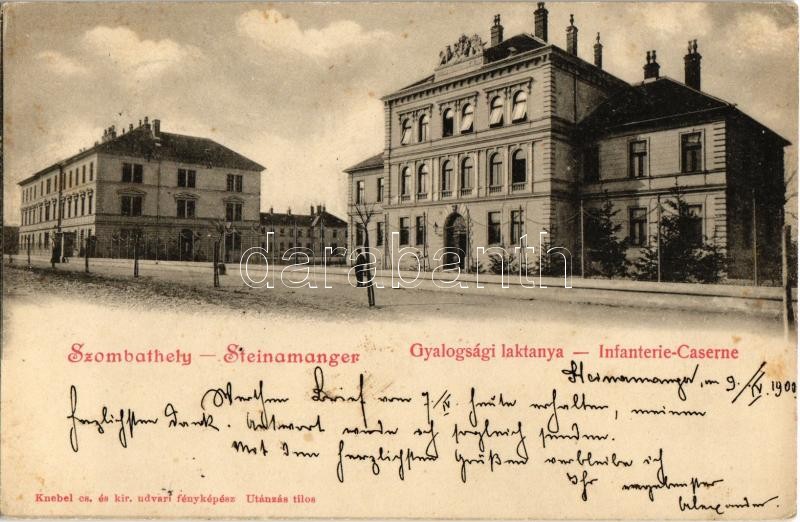 darabanth.com
Szombathely — Steinamanger
Gyalogsági laktanya — Infanterie-Caserne
Steinamanger, am 9./IV. 1900
Werthen Brief vom 7./IV. heute erhalten, meinen
herzlichsten Dank. Antwort werde ich sogleich senden.
Mit den herzlichsten Grüßen verbleibe ich
Ihr ergebenster
Alexander.
Knebel cs. és kir. udvari fényképész Utánzás tilos